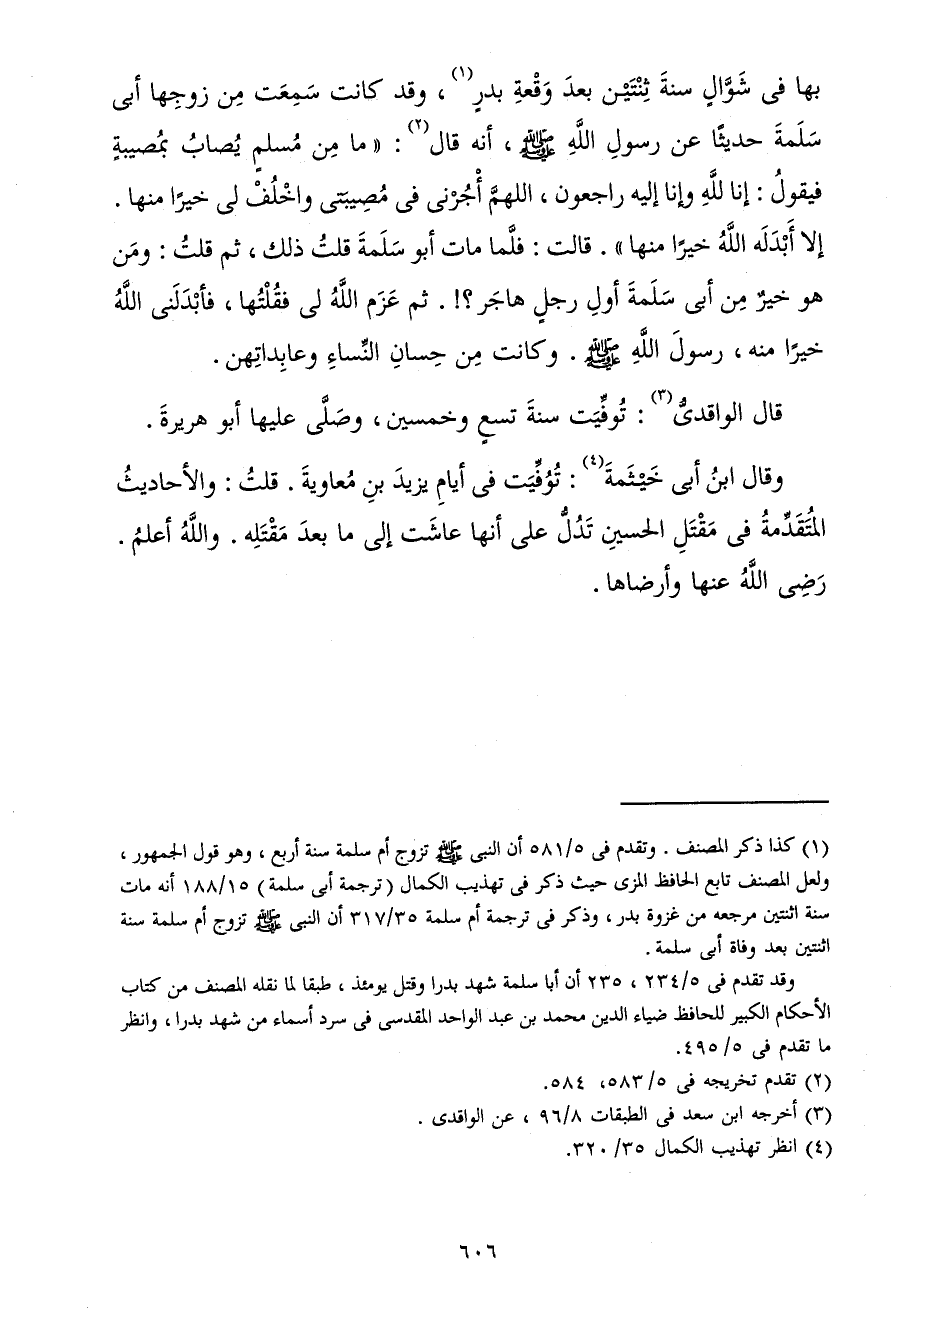 بها فى شَوَّالٍ سنةَ ثِنْتَيْن بعدَ وَقْعةِ بدرٍ(١) ، وقد كانت سَمِعَت مِن زوجِها أبى
سَلَمةَ حديثًا عن رسولِ اللَّهِ ﷺ ، أنه قال(٢) : « ما مِن مُسلمٍ يُصابُ بمُصيبةٍ
فيقولُ : إنا للَّهِ وإنا إليه راجعون ، اللهمَّ أْجُرْنى فى مُصِيبَتى واخْلُفْ لى خيرًا منها .
إلا أَبْدَلَه اللَّهُ خيرًا منها» . قالت : فلَّما مات أبو سَلَمةَ قلتُ ذلك ، ثم قلتُ : ومَن
هو خيرٌ مِن أبى سَلَمةَ أولِ رجلٍ هاجَر ؟! . ثم عَزَم اللَّهُ لى فقُلْتُها ، فأبْدَلَنى اللَّهُ
خيرًا منه ، رسولَ اللَّهِ ﷺ . وكانت مِن حِسانِ النِّساءِ وعابِداتِهن .
قال الواقدىُّ(٣) : تُوفِّيَت سنةَ تسعٍ وخمسين ، وصَلَّى عليها أبو هريرةَ .
وقال ابنُ أبى خَيْثَمةَ(٤) : تُوُفِّيَت فى أيامِ يزيدَ بنِ مُعاويةَ . قلتُ : والأحاديثُ
المُتَقَدِّمةُ فى مَقْتَلِ الحسينِ تَدُلُّ على أنها عاشَت إلى ما بعدَ مَقْتَلِه . واللَّهُ أعلمُ .
رَضِى اللَّهُ عنها وأرضاها .
(١) كذا ذكر المصنف . وتقدم فى ٥٨١/٥ أن النبى ﷺ تزوج أم سلمة سنة أربع ، وهو قول الجمهور ،
ولعل المصنف تابع الحافظ المزى حيث ذكر فى تهذيب الكمال (ترجمة أبى سلمة) ١٨٨/١٥ أنه مات
سنة اثنتين مرجعه من غزوة بدر ، وذكر فى ترجمة أم سلمة ٣١٧/٣٥ أن النبى ﷺ تزوج أم سلمة سنة
اثنتين بعد وفاة أبى سلمة .
وقد تقدم فى ٢٣٤/٥ ، ٢٣٥ أن أبا سلمة شهد بدرا وقتل يومئذ ، طبقا لما نقله المصنف من كتاب
الأحكام الكبير للحافظ ضياء الدين محمد بن عبد الواحد المقدسى فى سرد أسماء من شهد بدرا ، وانظر
ما تقدم فى ٤٩٥/٥.
(٢) تقدم تخريجه فى ٥٨٣/٥، ٥٨٤.
(٣) أخرجه ابن سعد فى الطبقات ٩٦/٨ ، عن الواقدى .
(٤) انظر تهذيب الكمال ٣٢٠/٣٥.
٦٠٦